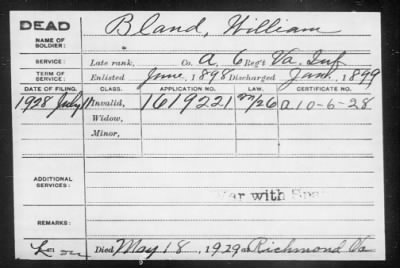 DEAD
NAME OF SOLDIER: Bland, William
SERVICE: Late rank, Co. A, 6 Reg't Va. Inf
TERM OF SERVICE: Enlisted June, 1898 Discharged Jan., 1899
DATE OF FILING. CLASS. APPLICATION NO. LAW. CERTIFICATE NO.
1928 July 11 Invalid, 1619221 /26 a 10-6-28
Widow,
Minor,
ADDITIONAL SERVICES:
War with Spa
REMARKS:
Died May 18, 1929 at Richmond Va